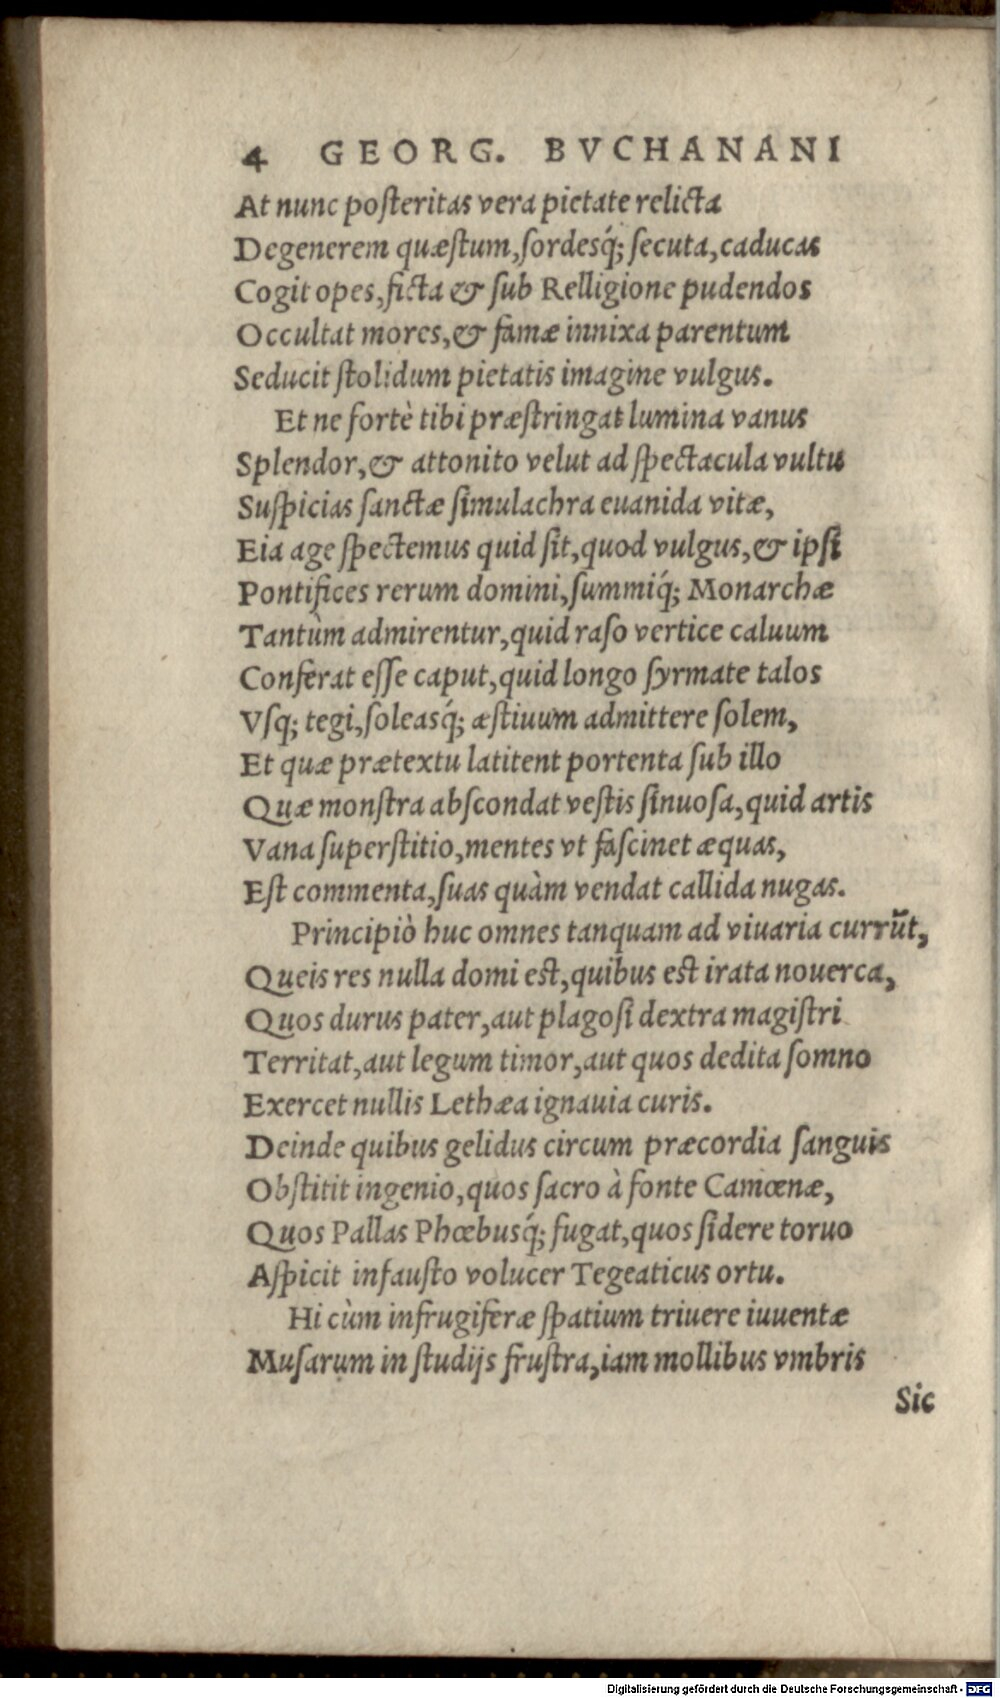 4 GEORG. BVCHANANI
At nunc posteritas vera pietate relicta
Degenerem quæstum, sordesq́; secuta, caducas
Cogit opes, ficta & sub Relligione pudendos
Occultat mores, & famæ innixa parentum
Seducit stolidum pietatis imagine vulgus.
Et ne fortè tibi præstringat lumina vanus
Splendor, & attonito velut ad spectacula vultu
Suspicias sanctæ simulachra euanida vitæ,
Eia age spectemus quid sit, quod vulgus, & ipsi
Pontifices rerum domini, summiq́; Monarchæ
Tantùm admirentur, quid raso vertice caluum
Conferat esse caput, quid longo syrmate talos
Vsq; tegi, soleasq́; æstiuum admittere solem,
Et quæ prætextu latitent portenta sub illo
Quæ monstra abscondat vestis sinuosa, quid artis
Vana superstitio, mentes vt fascinet æquas,
Est commenta, suas quàm vendat callida nugas.
Principiò huc omnes tanquam ad viuaria currūt,
Queis res nulla domi est, quibus est irata nouerca,
Quos durus pater, aut plagosi dextra magistri
Territat, aut legum timor, aut quos dedita somno
Exercet nullis Lethæa ignauia curis.
Deinde quibus gelidus circum præcordia sanguis
Obstitit ingenio, quos sacro à fonte Camœnæ,
Quos Pallas Phœbusq́; fugat, quos sidere toruo
Aspicit infausto volucer Tegeaticus ortu.
Hi cùm infrugiferæ spatium triuere iuuentæ
Musarum in studijs frustra, iam mollibus vmbris
Sic
Digitalisierung gefördert durch die Deutsche Forschungsgemeinschaft - DFG